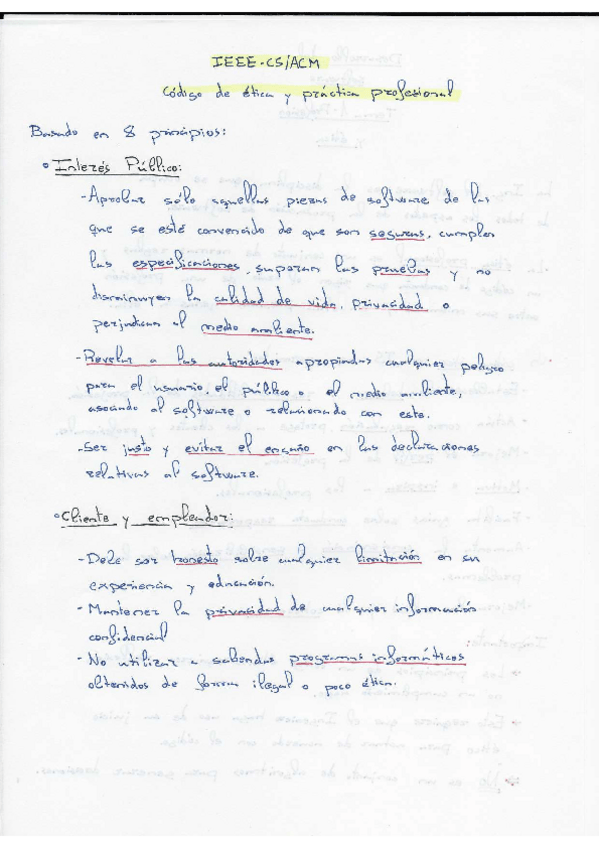 IEEE-CS/ACM
Código de ética y práctica profesional
Basado en 8 principios:
• Interés Público:
- Aprobar sólo aquellas piezas de software de las
que se esté convencido de que son seguras, cumplen
las especificaciones, superan las pruebas y no
disminuyen la calidad de vida, privacidad o
perjudican al medio ambiente.
- Revelar a las autoridades apropiadas cualquier peligro
para el usuario el público o el medio ambiente,
asociado al software o relacionado con este.
- Ser justo y evitar el engaño en las declaraciones
relativas al software.
• Cliente y empleador:
- Debe ser honesto sobre cualquier limitación en su
experiencia y educación.
- Mantener la privacidad de cualquier información
confidencial
- No utilizar a sabiendas programas informáticos
obtenidos de forma ilegal o poco ética.